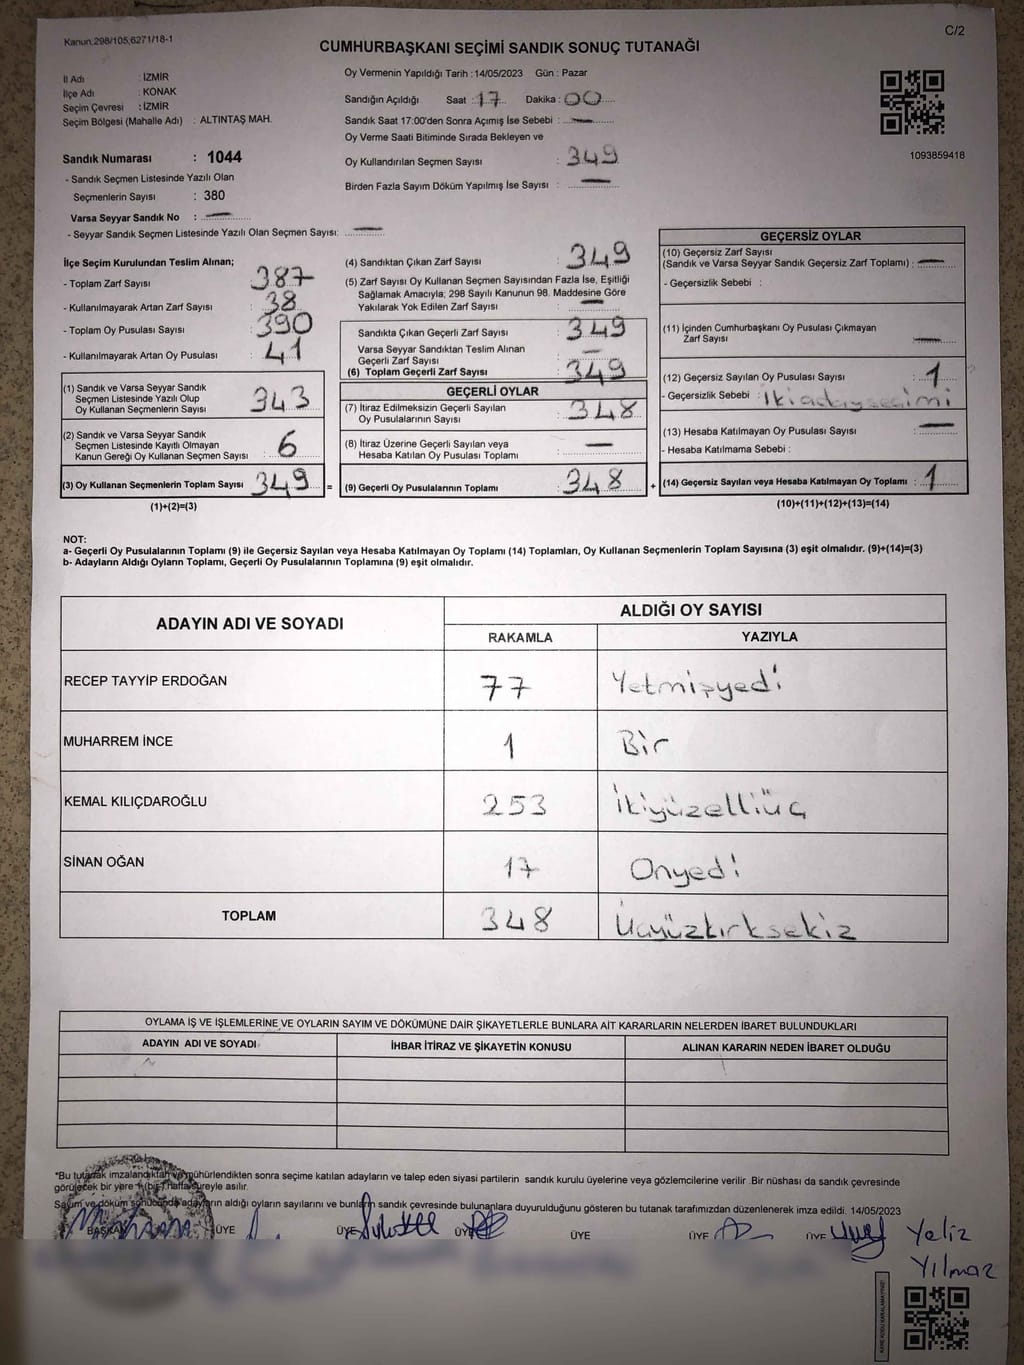 Kanun.298/105,6271/18-1
C/2
CUMHURBAŞKANI SEÇİMİ SANDIK SONUÇ TUTANAĞI
İl Adı : İZMİR
İlçe Adı : KONAK
Seçim Çevresi : İZMİR
Seçim Bölgesi (Mahalle Adı) : ALTINTAŞ MAH.
Sandık Numarası : 1044
- Sandık Seçmen Listesinde Yazılı Olan
Seçmenlerin Sayısı : 380
Varsa Seyyar Sandık No : —
- Seyyar Sandık Seçmen Listesinde Yazılı Olan Seçmen Sayısı: —
Oy Vermenin Yapıldığı Tarih : 14/05/2023 Gün : Pazar
Sandığın Açıldığı Saat : 17 Dakika : 00
Sandık Saat 17:00'den Sonra Açımış İse Sebebi : —
Oy Verme Saati Bitiminde Sırada Bekleyen ve
Oy Kullandırılan Seçmen Sayısı : 349
Birden Fazla Sayım Döküm Yapılmış İse Sayısı : —
1093859418
İlçe Seçim Kurulundan Teslim Alınan;
- Toplam Zarf Sayısı : 387
- Kullanılmayarak Artan Zarf Sayısı : 38
- Toplam Oy Pusulası Sayısı : 390
- Kullanılmayarak Artan Oy Pusulası : 41
(1) Sandık ve Varsa Seyyar Sandık
Seçmen Listesinde Yazılı Olup
Oy Kullanan Seçmenlerin Sayısı : 343
(2) Sandık ve Varsa Seyyar Sandık
Seçmen Listesinde Kayıtlı Olmayan
Kanun Gereği Oy Kullanan Seçmen Sayısı : 6
(3) Oy Kullanan Seçmenlerin Toplam Sayısı : 349 =
(1)+(2)=(3)
(4) Sandıktan Çıkan Zarf Sayısı : 349
(5) Zarf Sayısı Oy Kullanan Seçmen Sayısından Fazla İse, Eşitliği
Sağlamak Amacıyla; 298 Sayılı Kanunun 98. Maddesine Göre
Yakılarak Yok Edilen Zarf Sayısı : —
Sandıkta Çıkan Geçerli Zarf Sayısı : 349
Varsa Seyyar Sandıktan Teslim Alınan
Geçerli Zarf Sayısı : —
(6) Toplam Geçerli Zarf Sayısı : 349
GEÇERLİ OYLAR
(7) İtiraz Edilmeksizin Geçerli Sayılan
Oy Pusulalarının Sayısı : 348
(8) İtiraz Üzerine Geçerli Sayılan veya
Hesaba Katılan Oy Pusulası Toplamı : —
(9) Geçerli Oy Pusulalarının Toplamı : 348 +
GEÇERSİZ OYLAR
(10) Geçersiz Zarf Sayısı
(Sandık ve Varsa Seyyar Sandık Geçersiz Zarf Toplamı) : —
- Geçersizlik Sebebi :
(11) İçinden Cumhurbaşkanı Oy Pusulası Çıkmayan
Zarf Sayısı : —
(12) Geçersiz Sayılan Oy Pusulası Sayısı : 1
- Geçersizlik Sebebi : İki aday seçimi
(13) Hesaba Katılmayan Oy Pusulası Sayısı : —
- Hesaba Katılmama Sebebi :
(14) Geçersiz Sayılan veya Hesaba Katılmayan Oy Toplamı : 1
(10)+(11)+(12)+(13)=(14)
NOT:
a- Geçerli Oy Pusulalarının Toplamı (9) ile Geçersiz Sayılan veya Hesaba Katılmayan Oy Toplamı (14) Toplamları, Oy Kullanan Seçmenlerin Toplam Sayısına (3) eşit olmalıdır. (9)+(14)=(3)
b- Adayların Aldığı Oyların Toplamı, Geçerli Oy Pusulalarının Toplamına (9) eşit olmalıdır.
ADAYIN ADI VE SOYADI ALDIĞI OY SAYISI
RAKAMLA YAZIYLA
RECEP TAYYİP ERDOĞAN 77 Yetmişyedi
MUHARREM İNCE 1 Bir
KEMAL KILIÇDAROĞLU 253 İkiyüzelliüç
SİNAN OĞAN 17 Onyedi
TOPLAM 348 Üçyüzkırksekiz
OYLAMA İŞ VE İŞLEMLERİNE VE OYLARIN SAYIM VE DÖKÜMÜNE DAİR ŞİKAYETLERLE BUNLARA AİT KARARLARIN NELERDEN İBARET BULUNDUKLARI
ADAYIN ADI VE SOYADI İHBAR İTİRAZ VE ŞİKAYETİN KONUSU ALINAN KARARIN NEDEN İBARET OLDUĞU
*Bu tutanak imzalandıktan ve mühürlendikten sonra seçime katılan adayların ve talep eden siyasi partilerin sandık kurulu üyelerine veya gözlemcilerine verilir .Bir nüshası da sandık çevresinde
görülecek bir yere 1 (bir) hafta süreyle asılır.
Sayım ve döküm sonucunda adayların aldığı oyların sayılarını ve bunların sandık çevresinde bulunanlara duyurulduğunu gösteren bu tutanak tarafımızdan düzenlenerek imza edildi. 14/05/2023
BAŞKAN ÜYE ÜYE ÜYE ÜYE ÜYE ÜYE Yeliz
Yılmaz